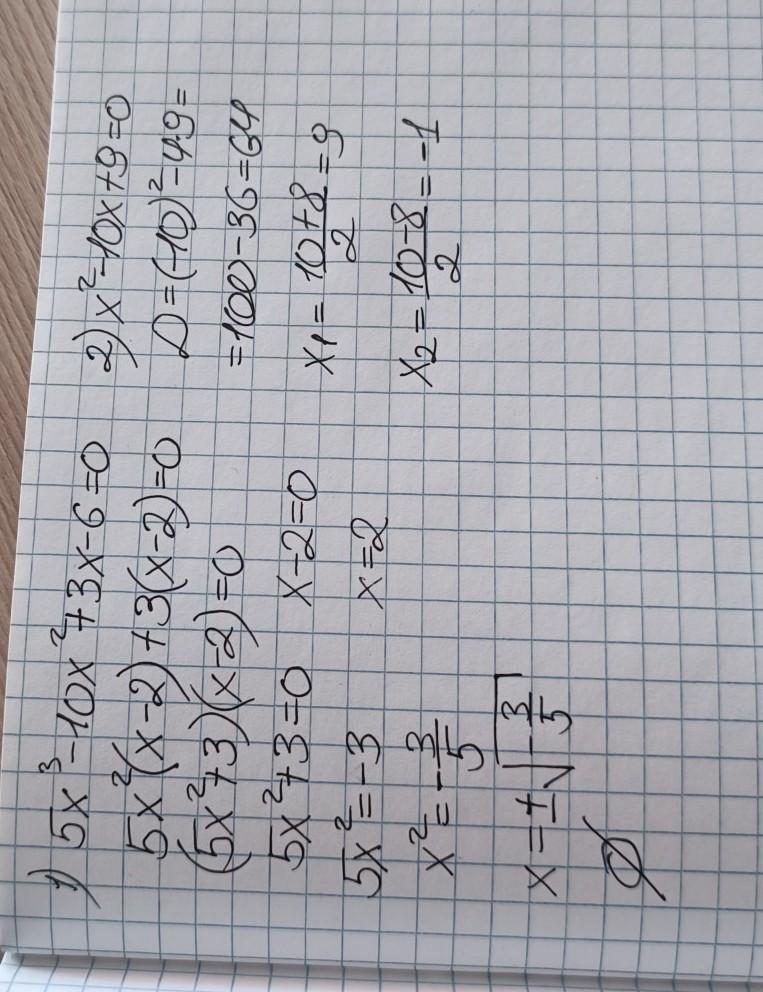 1) 5x³-10x²+3x-6=0
5x²(x-2)+3(x-2)=0
(5x²+3)(x-2)=0
5x²+3=0 x-2=0
5x²=-3 x=2
x²=-3/5
x=±√-3/5
∅
2) x²-10x+9=0
D=(-10)²-4·9=
=100-36=64
x₁=(10+8)/2=9
x₂=(10-8)/2=-1